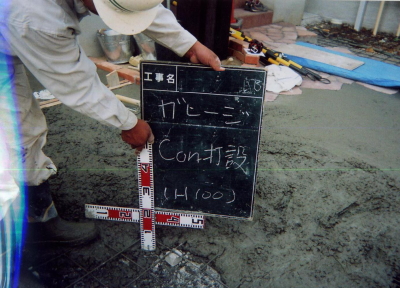 工事名
ガレージ
Con打設
(H100)